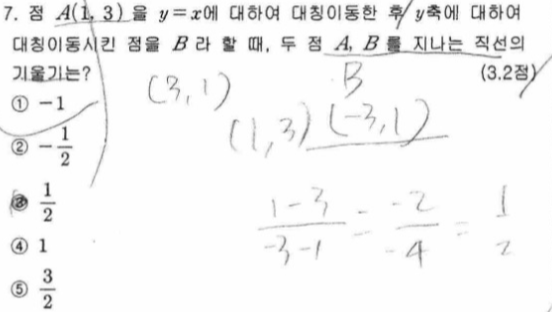 7. 점 A(1, 3)을 y=x에 대하여 대칭이동한 후 y축에 대하여
대칭이동시킨 점을 B라 할 때, 두 점 A, B를 지나는 직선의
기울기는? (3.2점)
① -1
② -1/2
③ 1/2
④ 1
⑤ 3/2
(3,1)
B
(1,3) (-3,1)
1-3/-3-1 = -2/-4 = 1/2